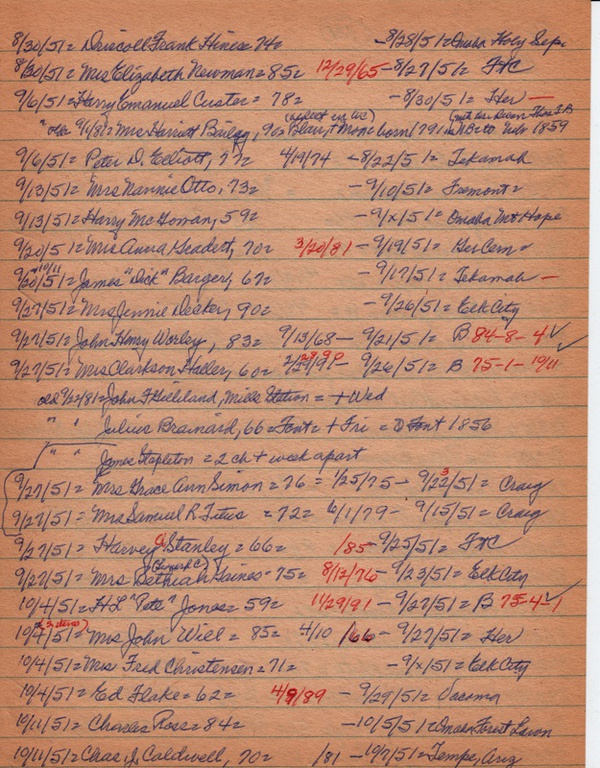 8/30/51 = Driscoll Frank Hines = 74 = - 8/28/51 = Omaha Holy Sep.
8/30/51 = Mrs Elizabeth Newman = 85 = 12/29/65 - 8/27/51 = FHC
9/6/51 = Harry Emanuel Custer = 78 = - 8/30/51 = Her -
" old 9/1/81 = Mrs Harriett 90 = Blair, + Mon = born 1791 in 1859
9/6/51 = Peter D. Elliott, 77 = 4/19/74 - 8/22/51 = Tekamah
9/13/51 = Mrs Nannie Otto, 73 = - 9/10/51 = Fremont =
9/13/51 = Harry McGowan, 59 = - 9/x/51 = Omaha Mt Hope
9/20/51 = Mrs Anna Geadert, 70 = 3/20/81 - 9/19/51 = Ger Cem =
9/20/51 = " 10/11 James "Dick" Barger, 67 = - 9/17/51 = Tekamah -
9/27/51 = Mrs Jennie Decker, 90 = - 9/26/51 = Elk City
9/27/51 = John Henry Worley, 83 = 9/13/68 - 9/21/51 = B 84-8-4 ✓
9/27/51 = Mrs Clarkson Haller, 60 = 2/28/91 - 9/26/51 = B 75-1- 10/11 ✓
old 9/22/81 = John F Gilliland, Mills Station = + Wed
" " Julius Brainard, 66 = Font = + Fri = Font 1856
" " James Stapleton = 2 ch + week apart
9/27/51 = Mrs Grace Ann Simon = 76 = 1/25/75 - 9/23/51 = Craig
9/27/51 = Mrs Samuel R. Titus = 72 = 6/1/79 - 9/15/51 = Craig
9/27/51 = Harvey G Stanley = 66 = /85 - 9/25/51 = FHC
9/27/51 = Mrs Bethiah Gaines = 75 = 8/12/76 - 9/23/51 = Elk City
10/4/51 = HL "Pete" Jones = 59 = 11/29/91 - 9/27/51 = B 75-4-1 ✓
10/4/51 = Mrs John Will = 85 = 4/10/66 - 9/27/51 = Her
10/4/51 = Mrs Fred Christensen = 71 = - 9/x/51 = Elk City
10/4/51 = Ed Flake = 62 = 4/9/89 - 9/29/51 = Vacoma
10/11/51 = Charles Ross = 84 = - 10/5/51 = Omaha Forest Lawn
10/11/51 = Chas J. Caldwell, 70 = /81 - 10/7/51 = Tempe, Ariz